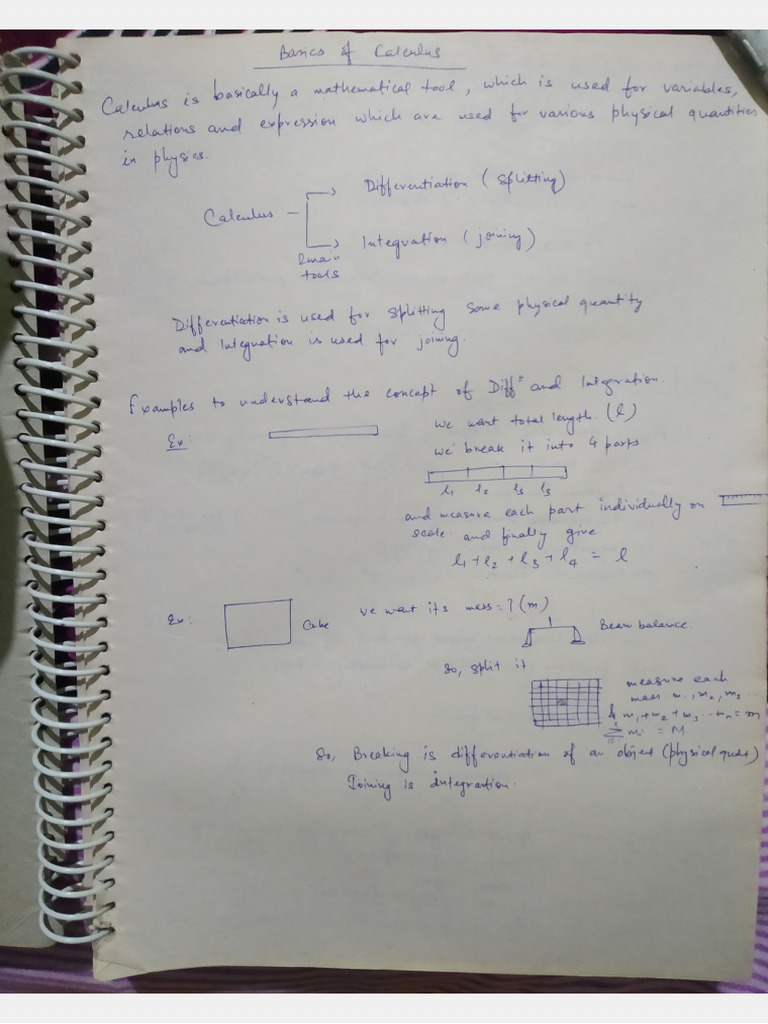 Basics of Calculus
Calculus is basically a mathematical tool, which is used for variables,
relations and expression which are used for various physical quantities
in physics.
Differentiation (splitting)
Calculus
Integration (joining)
2 main
tools
Differentiation is used for splitting some physical quantity
and Integration is used for joining.
Examples to understand the concept of Diffⁿ and Integration.
Ex:
we want total length. (l)
we break it into 4 parts
l₁ l₂ l₃ l₃
and measure each part individually on
scale and finally give
l₁ + l₂ + l₃ + l₄ = l
Ex:
Cube
we want its mass = ? (m)
Beam balance
So, split it
measure each
mass m₁, m₂, m₃ ...
& m₁ + m₂ + m₃ ... mₙ = m
∑ mᵢ = M
So, Breaking is differentiation of an object (physical quan)
Joining is integration.